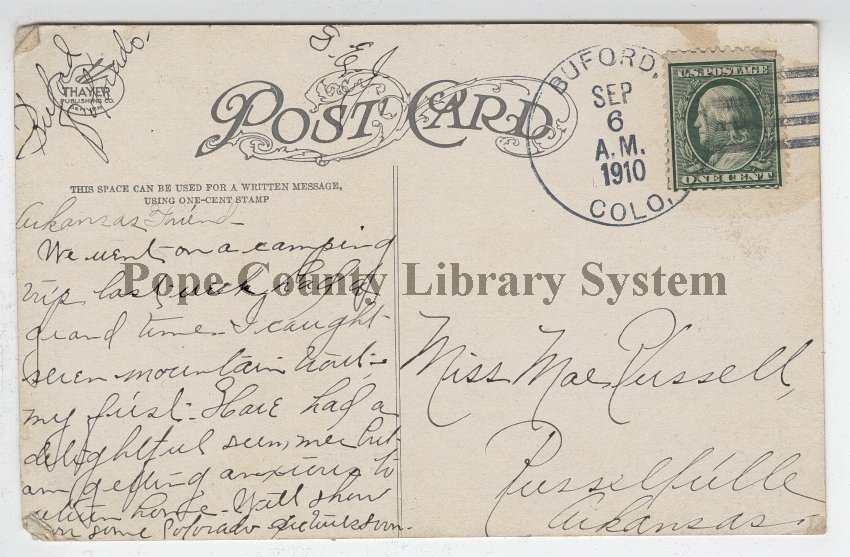 Buford
Colorado.
G. E. J.
THAYER
PUBLISHING CO.
DENVER
POST CARD
BUFORD,
SEP
6
A.M.
1910
COLO.
U.S. POSTAGE
ONE CENT
THIS SPACE CAN BE USED FOR A WRITTEN MESSAGE,
USING ONE-CENT STAMP
Arkansas Friend
We went on a camping
trip last week, had a
grand time. I caught
seven mountain trout -
my first. Have had a
delightful summer but
am getting anxious to
return home. Will show
you some Colorado pictures soon.
Pope County Library System
Miss Mae Russell,
Russellville
Arkansas.